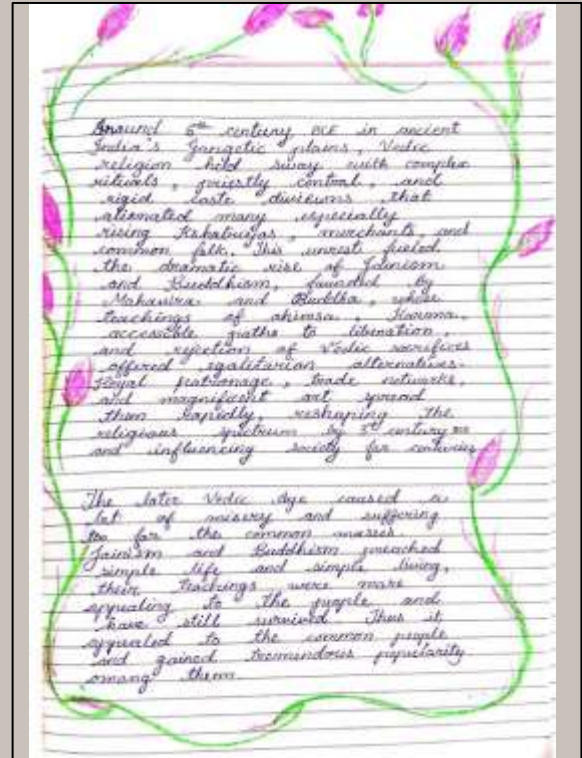 Around 6th century BCE in ancient
India's Gangetic plains, Vedic
religion held sway with complex
rituals, priestly control, and
rigid caste divisions that
alienated many especially
rising Kshatriyas, merchants, and
common folk. This unrest fueled
the dramatic rise of Jainism
and Buddhism, founded by
Mahavira and Buddha, whose
teachings of ahimsa, Karma,
accessible paths to liberation,
and rejection of Vedic sacrifices
offered egalitarian alternatives.
Royal patronage, trade networks,
and magnificent art spread
them rapidly, reshaping the
religious spectrum by 3rd century BCE
and influencing society for centuries
The later Vedic Age caused a
lot of misery and suffering
too for the common masses.
Jainism and Buddhism preached
simple life and simple living,
their teachings were more
appealing to the people and
have still survived Thus it
appealed to the common people
and gained tremendous popularity
among them